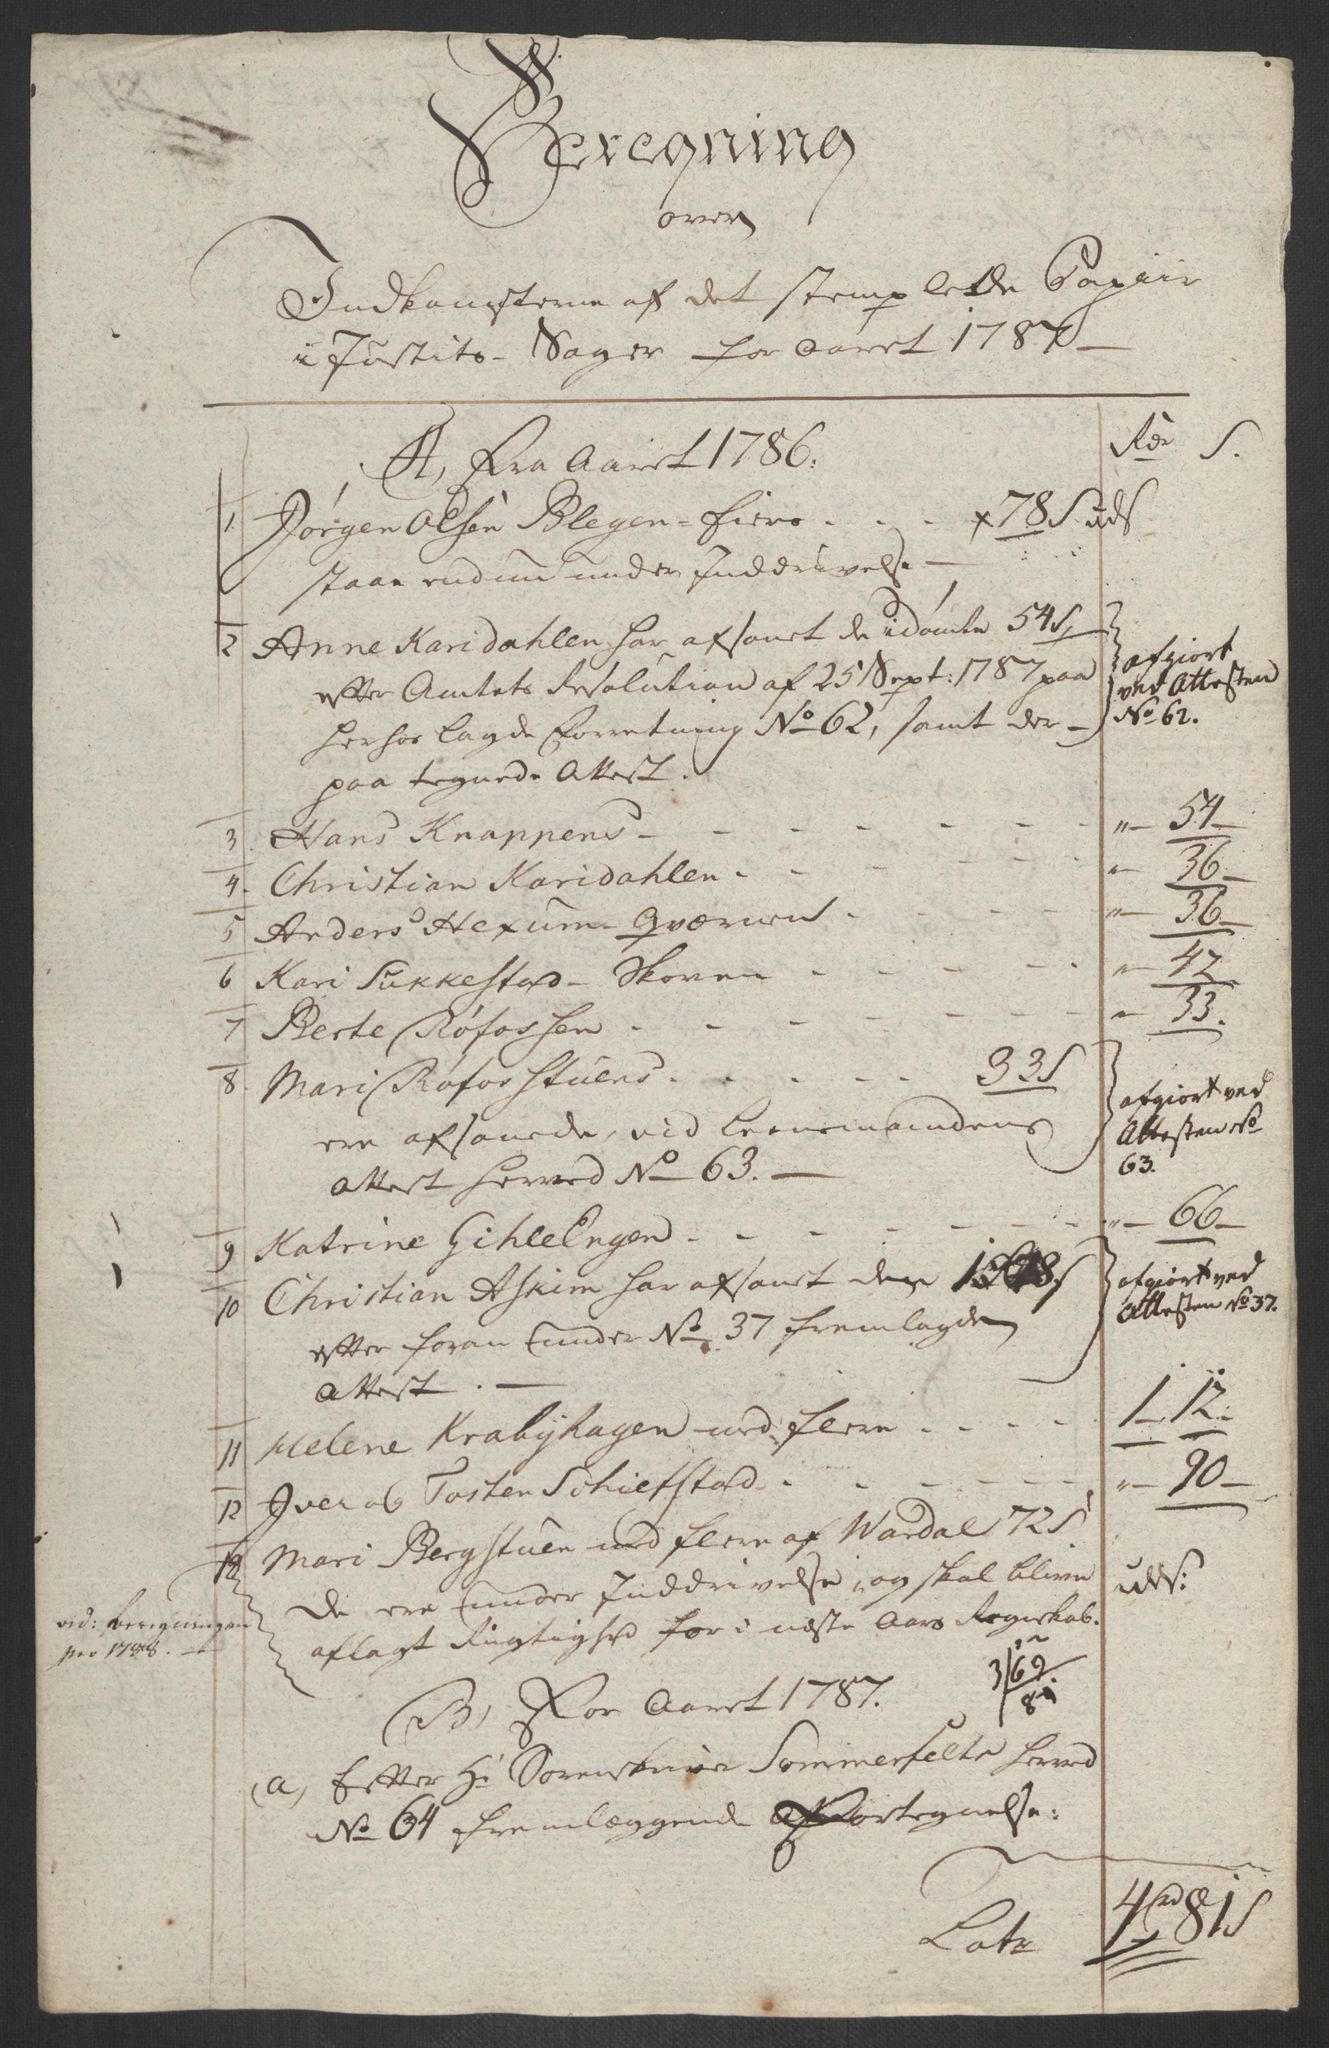 Beregning
over
Indkomsterne af det stemplede Papiir
i Justits-Sager for Aaret 1787 —
A, Fra Aaret 1786: Rdr S.
1. Jørgen Olsen Blegen-Eiers . . . × 78 S uds
staar endnu under Inddrivelse —
2 Anne Karidahlen har afsonet de idømte 54 S,
efter Amtets Resolution af 25 Sept: 1787 paa
herhos lagde Forretning No 62, samt der-
paa tegnede Attest.
afgiort
ved Attesten
No 62.
3. Hans Knappens - - - - - - - „ — 54 —
4. Christian Karidahlen - - - - - - „ — 36 —
5 Anders Hexum-Qværnen - - - - - „ — 36 —
6 Kari Sukkestad-Skoven - - - - - „ — 42
7 Berte Røfossen - - - - - - - „ — 33.
8. Mari Røfosstuens - - - - - 33 S
ere afsonede, vid Lensmandens
Attest herved No 63. —
afgiort ved
Attesten No
63.
9 Katrine Gihle Engen - - - - - - „ — 66 —
10 Christian Askim har afsonet den
efter foran under No 37 fremlagde
Attest. —
afgiort ved
Attesten No 37.
11 Helene Krabyhagen med fleere - - - - 1 — 12.
12 Iver og Tosten Schiefstad - - - - - - „ — 90 —
13 Mari Bergstuen med fleere af Wardal 72 S
de ere under Inddrivelse, og skal blive
aflagt Rigtighed for i næste Aars Regnskab.
uds:
vid: beregningen
pro 1788. —
3/62
81
B, For Aaret 1787.
a, Efter Hr Sorenskriver Sommerfelts herved
No 64 fremlæggende Fortegnelse:
Latr 4 rd 81 S